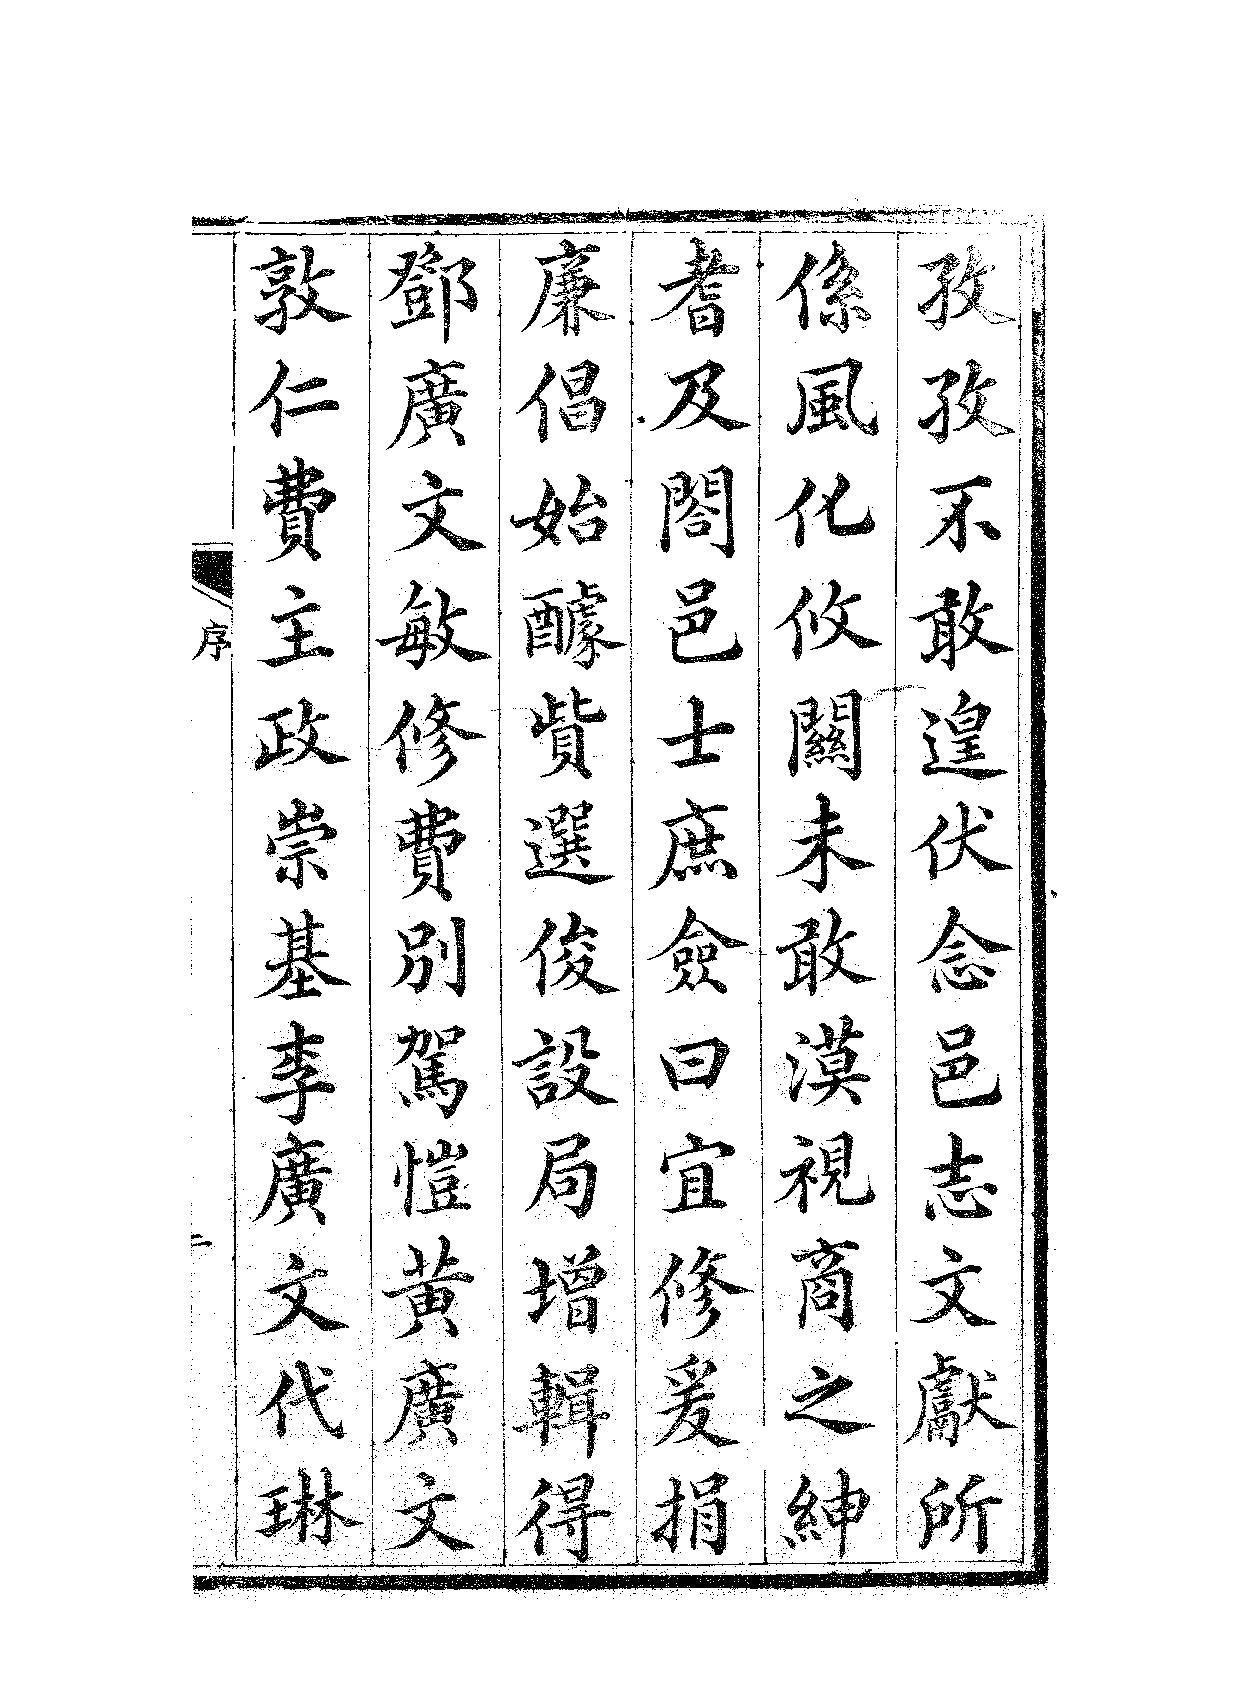 孜孜不敢遑伏念邑志文獻所
係風化攸關未敢漠視商之紳
耆及閤邑士庶僉曰宜修爰捐
廉倡始醵貲選俊設局增輯得
鄧廣文敏修費別駕愷黃廣文
敦仁費主政崇基李廣文代琳
序
二